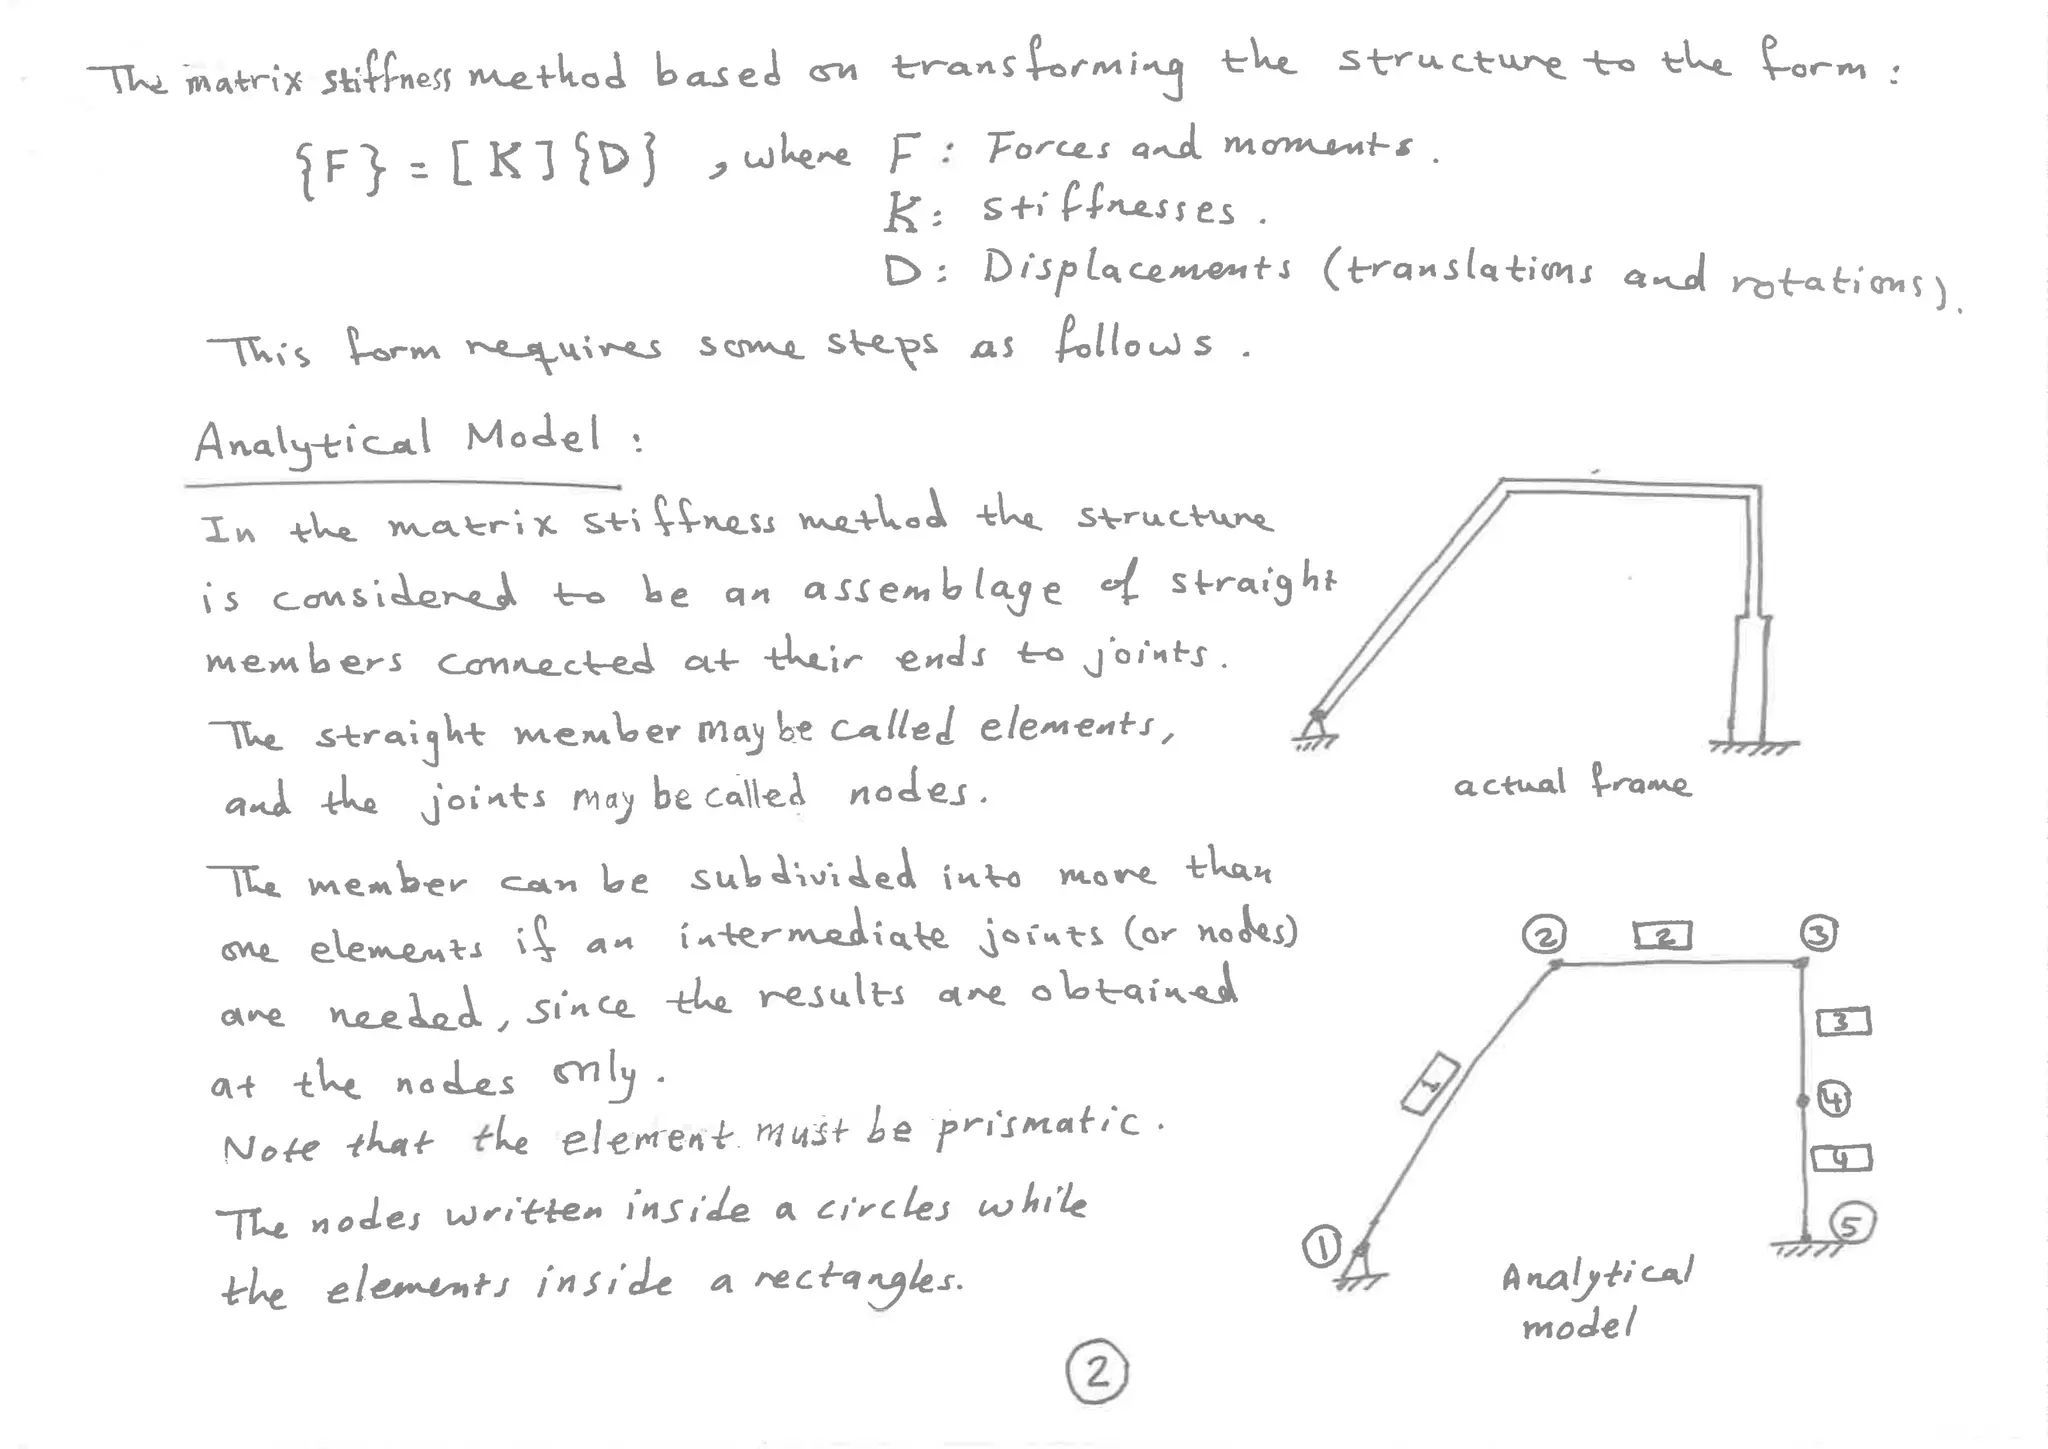 The matrix stiffness method based on transforming the structure to the form :
{F} = [K]{D} , where F : Forces and moments .
K : stiffnesses .
D : Displacements (translations and rotations) .
This form requires some steps as follows .
Analytical Model :
In the matrix stiffness method the structure
is considered to be an assemblage of straight
members connected at their ends to joints .
The straight member may be called elements ,
and the joints may be called nodes .
actual frame
The member can be subdivided into more than
one elements if an intermediate joints (or nodes)
are needed , since the results are obtained
at the nodes only .
Note that the element must be prismatic .
The nodes written inside a circles while
the elements inside a rectangles .
2 2 3
3
1
4
4
1 5
Analytical
model
2